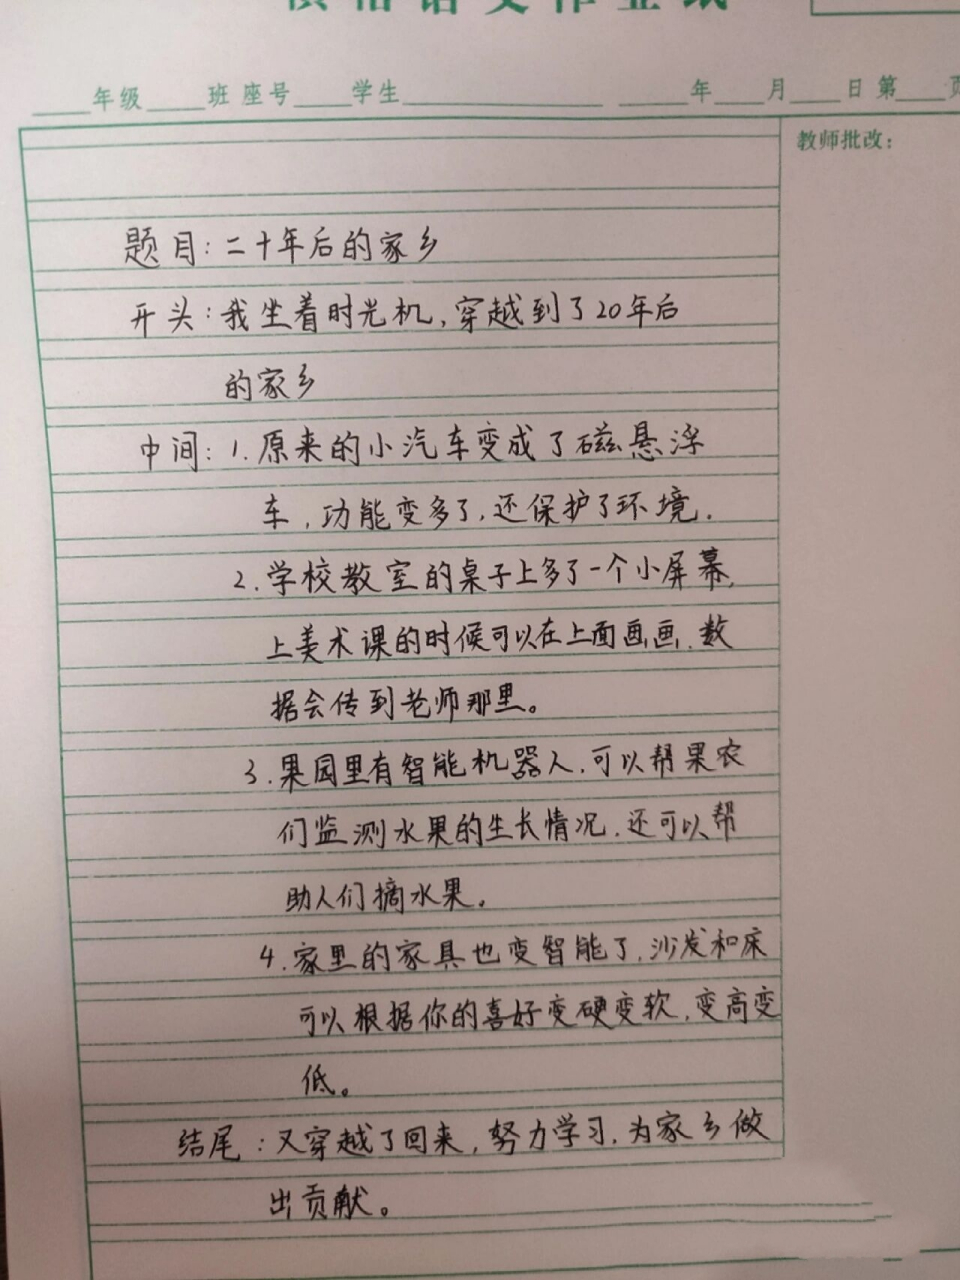 年级 班 座号 学生 年 月 日 第 页
教师批改:
题目:二十年后的家乡
开头:我坐着时光机,穿越到了20年后
的家乡
中间:1.原来的小汽车变成了磁悬浮
车,功能变多了,还保护了环境.
2.学校教室的桌子上多了一个小屏幕,
上美术课的时候可以在上面画画,数
据会传到老师那里。
3.果园里有智能机器人,可以帮果农
们监测水果的生长情况,还可以帮
助人们摘水果。
4.家里的家具也变智能了,沙发和床
可以根据你的喜好变硬变软,变高变
低。
结尾:又穿越了回来,努力学习,为家乡做
出贡献。